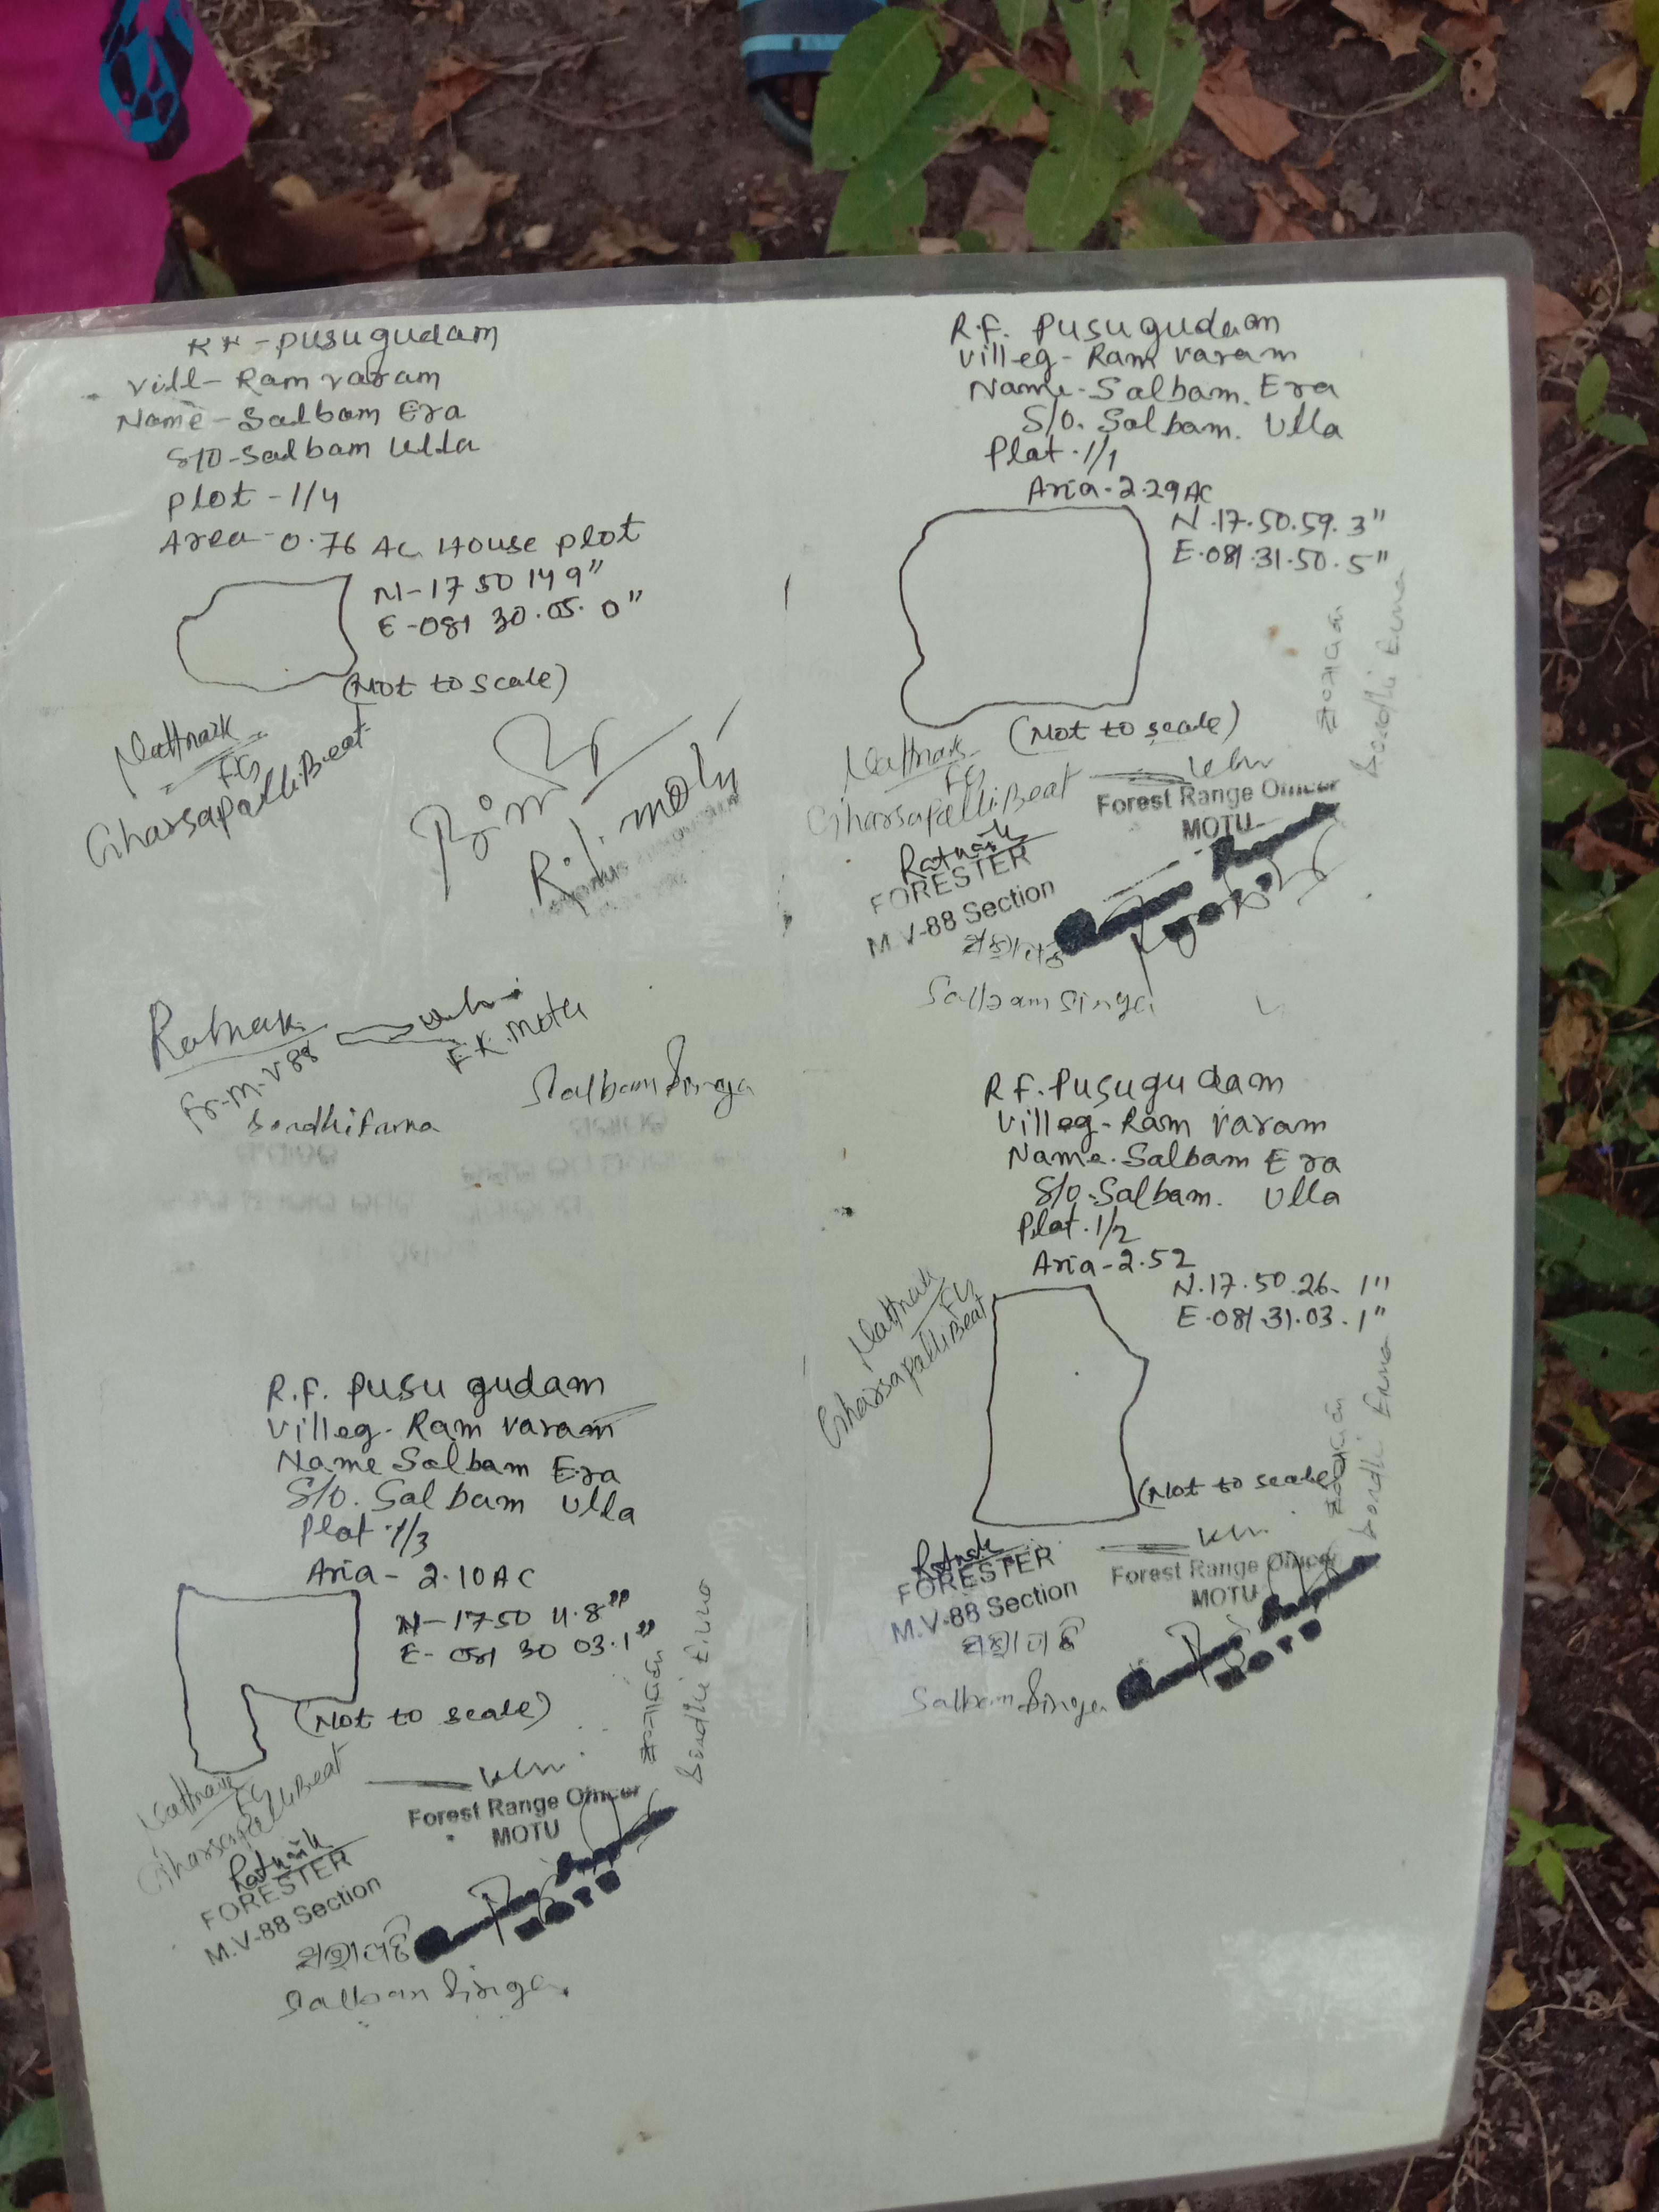 RF - Pusugudam
Vill - Ram varam
Name - Salbam Era
S/O - Salbam Ulla
plot - 1/4
Area - 0.76 Ac House plot
N - 17 50 14 9"
E - 081 30. 05. 0"
(Not to scale)
FG
Gharsapalli Beat
R.I. motu
Fr. M. V 88
Salbam Singa
R.F. Pusugudam
Villeg - Ram varam
Name - Salbam. Era
S/o. Salbam. Ulla
Plat. 1/1
Aria - 2.29 AC
N. 17. 50. 59. 3"
E. 081. 31. 50. 5"
(Not to scale)
FG
Gharsapalli Beat
Forest Range Officer
MOTU
FORESTER
M.V-88 Section
Salbam Singa
R.F. Pusugudam
Villeg - Ram varam
Name. Salbam Era
S/o. Salbam. Ulla
Plat. 1/2
Aria - 2.52
N. 17. 50. 26. 1"
E. 081. 31. 03. 1"
(Not to scale)
FG
Gharsapalli Beat
Forest Range Officer
MOTU
FORESTER
M.V-88 Section
Salbam Singa
R.F. Pusu gudam
Villeg - Ram varam
Name Salbam Era
S/o. Salbam Ulla
Plat. 1/3
Aria - 2.10 AC
N - 17 50 11.8"
E - 081 30 03.1"
(Not to scale)
FG
Gharsapalli Beat
Forest Range Officer
MOTU
FORESTER
M.V-88 Section
Salbam Singa